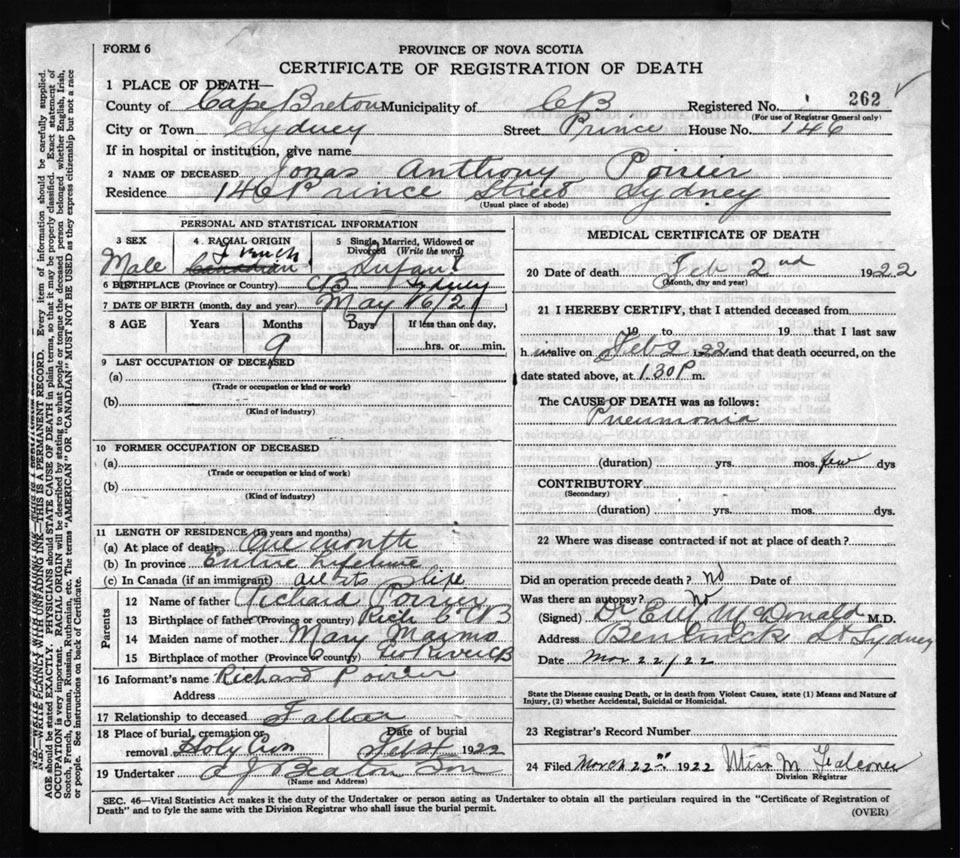 FORM 6
PROVINCE OF NOVA SCOTIA
CERTIFICATE OF REGISTRATION OF DEATH
1 PLACE OF DEATH—
County of Cape Breton Municipality of CB Registered No. 262
(For use of Registrar General only)
City or Town Sydney Street Prince House No. 146
If in hospital or institution, give name
2 NAME OF DECEASED Jonas Anthony Poirier
Residence 146 Prince Street Sydney
(Usual place of abode)
PERSONAL AND STATISTICAL INFORMATION
3 SEX 4 RACIAL ORIGIN 5 Single, Married, Widowed or Divorced (Write the word)
Male French Canadian Infant
6 BIRTHPLACE (Province or Country) CB Sydney
7 DATE OF BIRTH (month, day and year) May 16/21
8 AGE Years Months Days If less than one day,
9 hrs. or min.
9 LAST OCCUPATION OF DECEASED
(a)
(Trade or occupation or kind or work)
(b)
(Kind of industry)
10 FORMER OCCUPATION OF DECEASED
(a)
(Trade or occupation or kind or work)
(b)
(Kind of industry)
11 LENGTH OF RESIDENCE (In years and months)
(a) At place of death One month
(b) In province Entire Lifetime
(c) In Canada (if an immigrant) all its life
Parents
12 Name of father Richard Poirier
13 Birthplace of father (Province or country) CB
14 Maiden name of mother Mary
15 Birthplace of mother (Province or country) River CB
16 Informant's name Richard Poirier
Address
17 Relationship to deceased Father
18 Place of burial, cremation or removal Holy Date of burial Feb 4 1922
19 Undertaker A J Beaton Son
(Name and Address)
MEDICAL CERTIFICATE OF DEATH
20 Date of death Feb 2nd 1922
(Month, day and year)
21 I HEREBY CERTIFY, that I attended deceased from
19 to 19 that I last saw
h im alive on Feb 2 1922 and that death occurred, on the
date stated above, at 1.30 P m.
The CAUSE OF DEATH was as follows:
Pneumonia
(duration) yrs. mos. few dys
CONTRIBUTORY
(Secondary)
(duration) yrs. mos. dys.
22 Where was disease contracted if not at place of death?
Did an operation precede death? No Date of
Was there an autopsy? No
(Signed) Dr McDonald M.D.
Address Bentinck St Sydney
Date Mar 22/22
State the Disease causing Death, or in death from Violent Causes, state (1) Means and Nature of
Injury, (2) whether Accidental, Suicidal or Homicidal.
23 Registrar's Record Number
24 Filed March 22nd 1922 Miss M Falconer
Division Registrar
SEC. 46—Vital Statistics Act makes it the duty of the Undertaker or person acting as Undertaker to obtain all the particulars required in the "Certificate of Registration of
Death" and to fyle the same with the Division Registrar who shall issue the burial permit.
(OVER)
N.B.—WRITE PLAINLY WITH UNFADING INK—THIS IS A PERMANENT RECORD. Every item of information should be carefully supplied.
AGE should be stated EXACTLY. PHYSICIANS should STATE CAUSE OF DEATH in plain terms, so that it may be properly classified. Exact statement of
OCCUPATION is very important. RACIAL ORIGIN will be described by stating to what people or tongue the deceased person belonged whether English, Irish,
Scotch, French, German, Russian, Ruthenian, etc. The terms "AMERICAN" or "CANADIAN" MUST NOT BE USED as they express citizenship but not a race
or people. See instructions on back of Certificate.